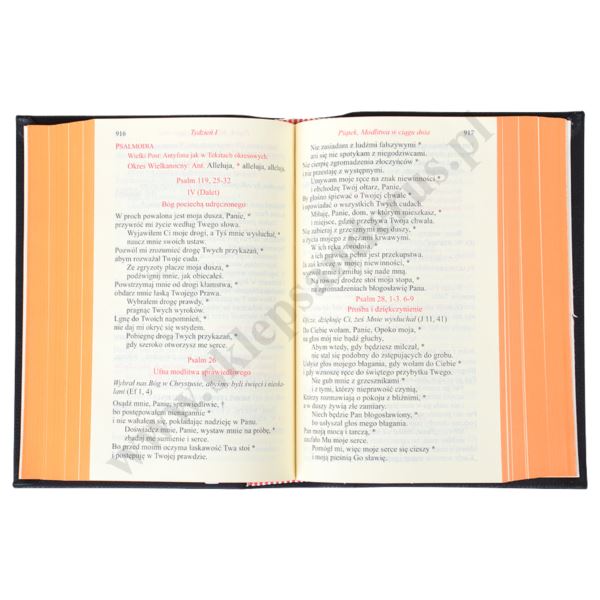 916 Tydzień I
PSALMODIA
Wielki Post: Antyfona jak w Tekstach okresowych.
Okres Wielkanocny: Ant. Alleluja, * alleluja, alleluja.
Psalm 119, 25-32
IV (Dalet)
Bóg pociechą udręczonego
W proch powalona jest moja dusza, Panie, *
przywróć mi życie według Twego słowa.
Wyjawiłem Ci moje drogi, a Tyś mnie wysłuchał, *
naucz mnie swoich ustaw.
Pozwól mi zrozumieć drogę Twych przykazań, *
abym rozważał Twoje cuda.
Ze zgryzoty płacze moja dusza, *
podźwignij mnie, jak obiecałeś.
Powstrzymaj mnie od drogi kłamstwa, *
obdarz mnie łaską Twojego Prawa.
Wybrałem drogę prawdy, *
pragnąc Twych wyroków.
Lgnę do Twoich napomnień, *
nie daj mi okryć się wstydem.
Pobiegnę drogą Twych przykazań, *
gdy szeroko otworzysz me serce.
Psalm 26
Ufna modlitwa sprawiedliwego
Wybrał nas Bóg w Chrystusie, abyśmy byli święci i nieska-
lani (Ef 1, 4)
Osądź mnie, Panie, sprawiedliwie, *
bo postępowałem nienagannie *
i nie wahałem się, pokładając nadzieję w Panu.
Doświadcz mnie, Panie, wystaw mnie na próbę, *
zbadaj me sumienie i serce.
Bo przed moimi oczyma łaskawość Twa stoi *
i postępuję w Twojej prawdzie.
Piątek, Modlitwa w ciągu dnia 917
Nie zasiadam z ludźmi fałszywymi *
ani się nie spotykam z niegodziwcami.
Nie cierpię zgromadzenia złoczyńców *
i nie przestaję z występnymi.
Umywam moje ręce na znak niewinności *
i obchodzę Twój ołtarz, Panie,
By głośno śpiewać o Twojej chwale *
i opowiadać o wszystkich Twych cudach.
Miłuję, Panie, dom, w którym mieszkasz, *
i miejsce, gdzie przebywa Twoja chwała.
Nie zabieraj z grzesznymi mej duszy, *
a życia mojego z mężami krwawymi.
W ich ręku zbrodnia, *
a ich prawica pełna jest przekupstwa.
Ja zaś kroczę w mojej niewinności, *
wyzwól mnie i zmiłuj się nade mną.
Na równej drodze stoi moja stopa, *
na zgromadzeniach błogosławię Pana.
Psalm 28, 1-3. 6-9
Prośba i dziękczynienie
Ojcze, dziękuję Ci, żeś Mnie wysłuchał (J 11, 41)
Do Ciebie wołam, Panie, Opoko moja, *
na głos mój nie bądź głuchy,
Abym wtedy, gdy będziesz milczał, *
nie stał się podobny do zstępujących do grobu.
Usłysz głos mojego błagania, gdy wołam do Ciebie *
i gdy wznoszę ręce do świętego przybytku Twego.
Nie gub mnie z grzesznikami *
i z tymi, którzy nieprawość czynią,
Którzy rozmawiają o pokoju z bliźnimi, *
a w duszy żywią złe zamiary.
Niech będzie Pan błogosławiony, *
bo usłyszał głos mego błagania.
Pan moją mocą i tarczą, *
zaufało Mu moje serce.
Pomógł mi, więc moje serce się cieszy *
i moją pieśnią Go sławię.